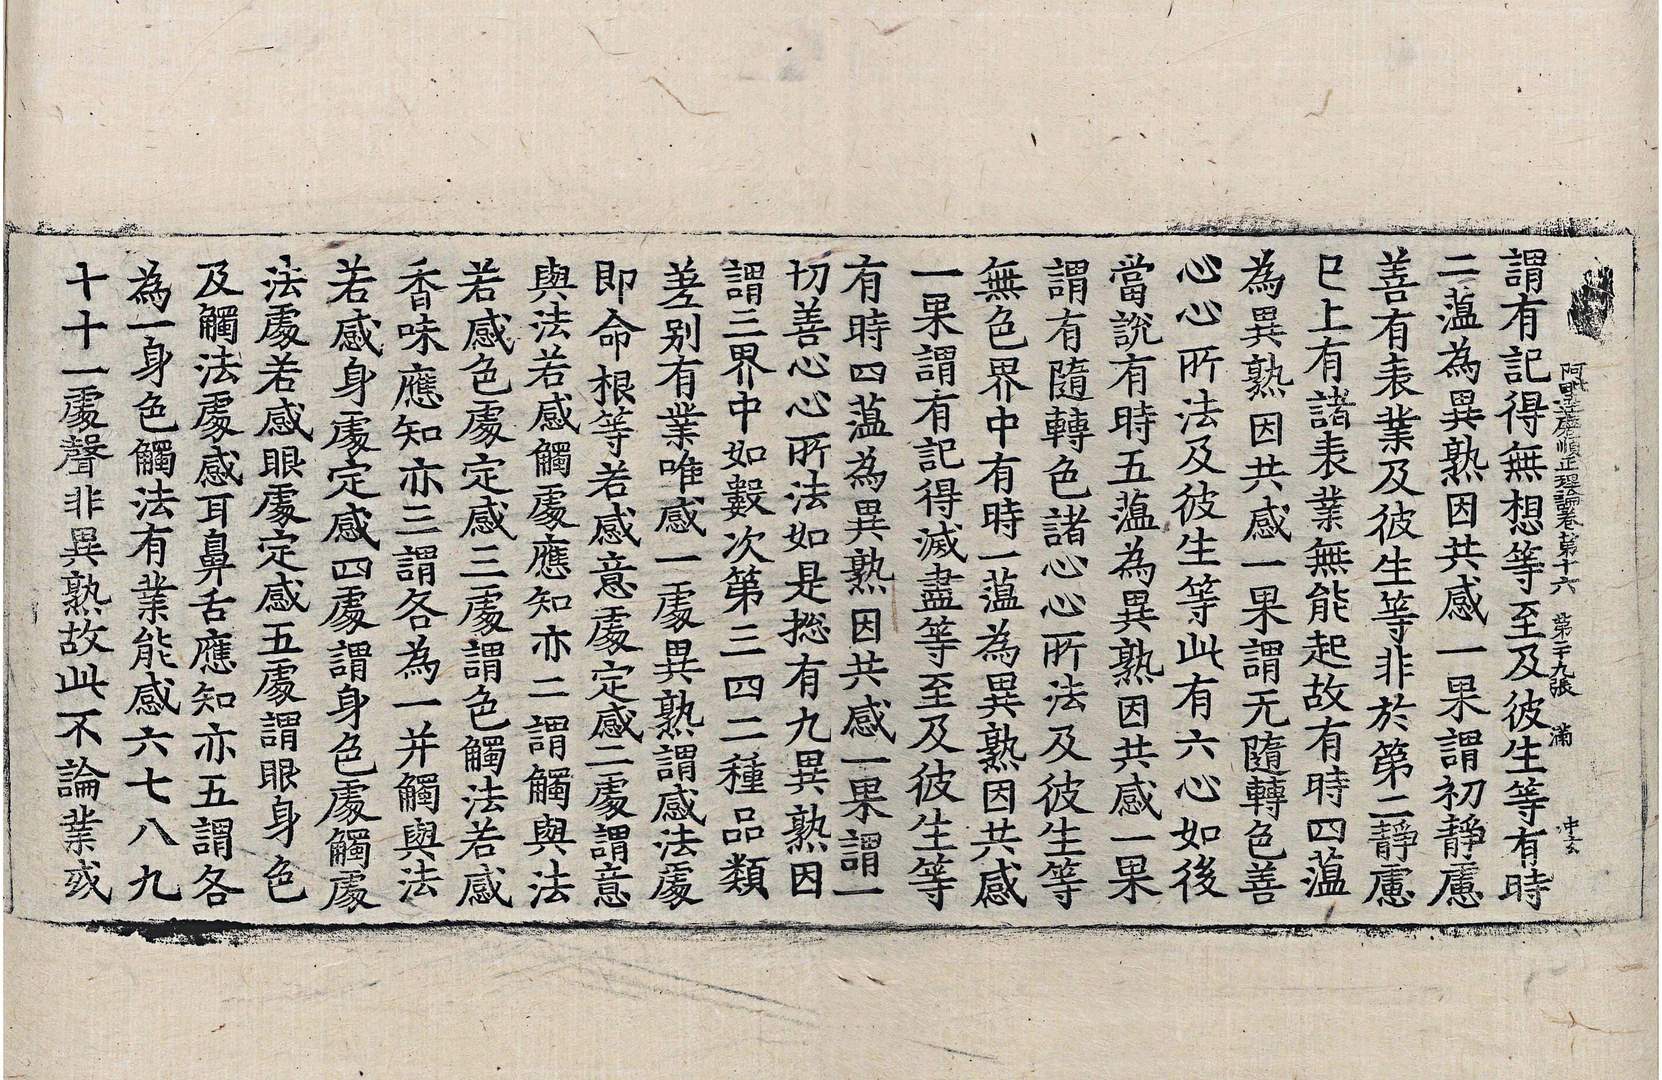 阿毗達磨順正理論卷第十六 第二十九張 滿
謂有記得無想等至及彼生等有時
二薀為異熟因共感一果謂初靜慮
善有表業及彼生等非於第二靜慮
已上有諸表業無能起故有時四薀
為異熟因共感一果謂无隨轉色善
心心所法及彼生等此有六心如後
當說有時五薀為異熟因共感一果
謂有隨轉色諸心心所法及彼生等
無色界中有時一薀為異熟因共感
一果謂有記得滅盡等至及彼生等
有時四薀為異熟因共感一果謂一
切善心心所法如是揔有九異熟因
謂三界中如數次第三四二種品類
差別有業唯感一處異熟謂感法處
即命根等若感意處定感二處謂意
與法若感觸處應知亦二謂觸與法
若感色處定感三處謂色觸法若感
香味應知亦三謂各為一并觸與法
若感身處定感四處謂身色處觸處
法處若感眼處定感五處謂眼身色
及觸法處感耳鼻舌應知亦五謂各
為一身色觸法有業能感六七八九
十十一處聲非異熟故此不論業或